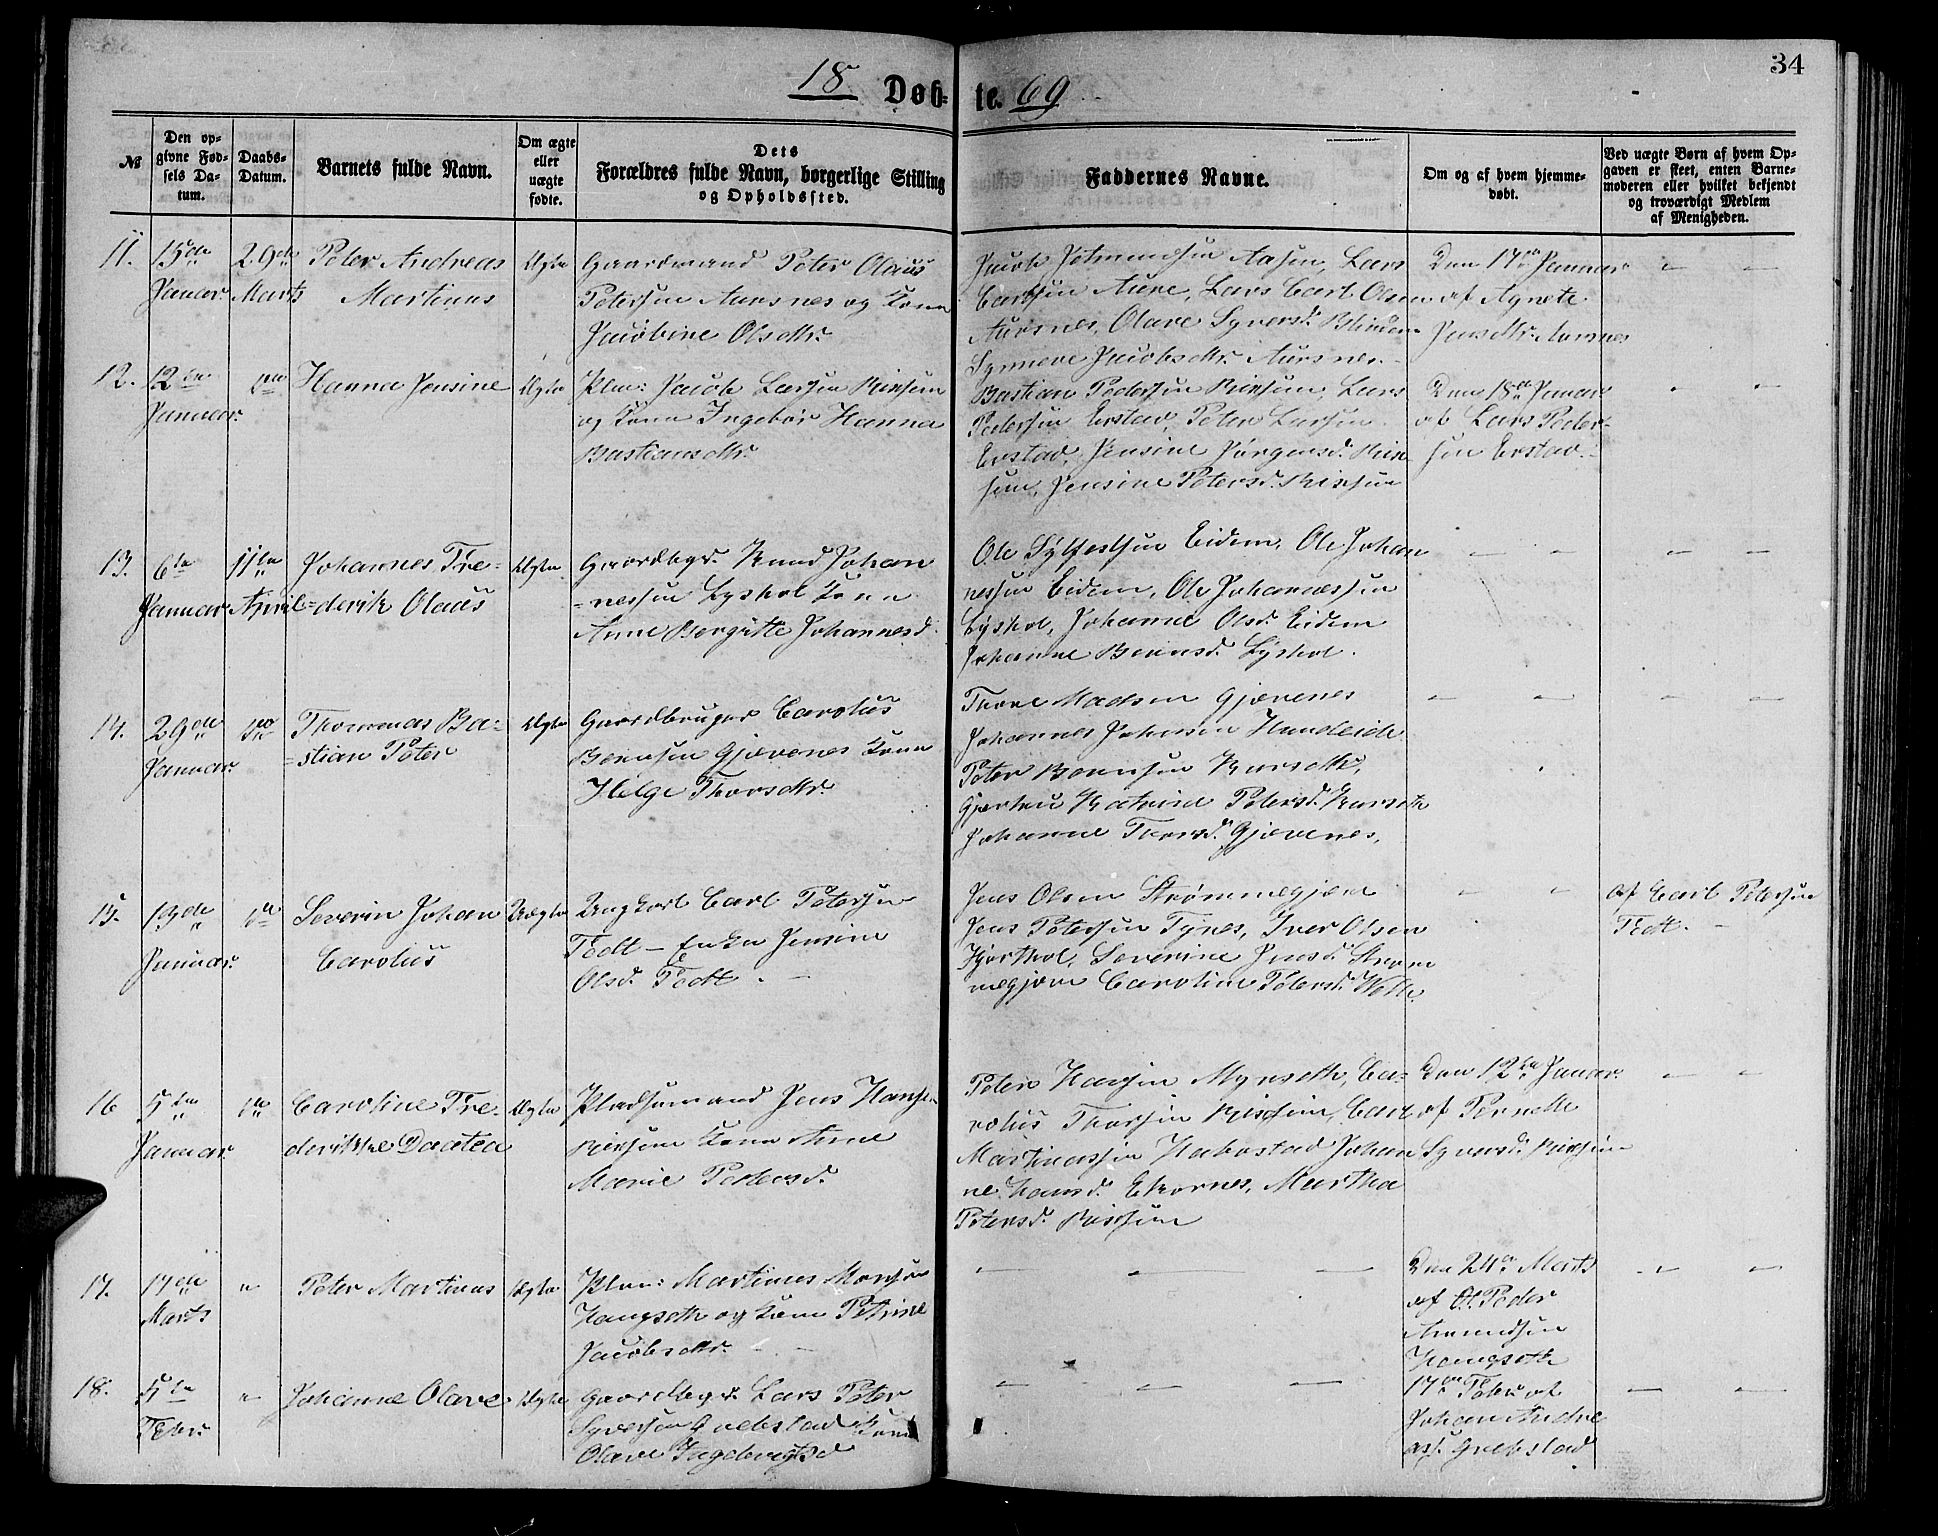 34
18 Døb- te. 69
№
Den op-
givne Fød-
sels Da-
tum.
Daabs-
Datum.
Barnets fulde Navn.
Om ægte
eller
uægte
fødte.
Dets
Forældres fulde Navn, borgerlige Stilling
og Opholdssted.
Faddernes Navne.
Om og af hvem hjemme-
døbt.
Ved uægte Børn af hvem Op-
gaven er skeet, enten Barne-
moderen eller hvilket bekjendt
og troværdigt Medlem
af Menigheden.
11.
15de
Januar.
29de
Marts
Peter Andreas
Martinus
Ægte
Gaardmand Peter Olaus
Petersen Aursnes og Kone
Jacobine Olsdtr.
Aasen, Lars
Carlsen Aure, Lars Carl Olsen
Aursnes, Olave Syversd.
Synneve Jacobsdtr. Aursnes.
Den 17de Januar
af Agnete
Jensdtr. Aursnes
12.
12te
Januar.
Hanna Jensine
Ægte
Plm: Jacob Larsen
og Kone Ingebor Hanna
Bastiansdtr.
Bastian Pedersen Lars
Pedersen Erstad, Peter Larsen
Erstad, Jensine Jørgensd.
Jensine Petersd.
Den 18de Januar
af Lars Peder-
sen Erstad.
13.
6te
Januar
11te
April
Johannes Fre-
=derik Olaus
Ægte
Gaardbgr. Knud Johan
=nessen Lyshol Kone
Anne Bergitte Johannesd.
Ole Sylfestsen Eidem, Ole Johan
nessen Eidem, Ole Johannessen
Lyshol, Johanne Olsd. Eidem
Johanne Berntsd. Lyshol.
14.
29de
Januar.
Thommas Ba-
=stian Peter
Ægte
Gaardbruger Carolus
Berntsen Gjævenes Kone
Helge Thorsdtr.
Thore Madsen Gjævenes
Johannes Johnsen Hundeide
Peter Berntsen Kurseth,
Petersd. Kurseth
Johanne Thorsd. Gjævenes,
15.
19de
Januar.
Severin Johan
Carolus
Uægte
Ungkarl Carl Petersen
Tedt - Enke Jensine
Olsd. Tedt.
Jens Olsen Strømmegjære
Jens Petersen Tynes, Iver Olsen
Severine Jensd. Strøm
megjære Caroline Petersd. Welle
af Carl Petersen
Tedt.
16
5te
Januar.
Caroline Fre-
derikke Daatea
Ægte
Pladsemand Jens Hansen
Kone Anne
Marie Pedersd.
Peter Hansen Myrseth, Ca-
rolus Thorsen
Martinussen Habostad Johan
ne Hansd. Ekornes, Martha
Petersd.
Den 12te Januar.
af Pernelle
Syversd.
17.
17de
Marts
"
Peter Martinus
Ægte
Plm: Martinus Monsen
Haugseth og Kone Petrine
Jacobsdtr.
Den 24de Marts
af Ol. Peder
Amundsen
Haugseth
18.
5te
Febr.
"
Johanne Olave
Ægte
Gaardbgr. Lars Peter
Syversen Grebstad Kone
Olave Ingebrigtsd
17de Febr. af
Johan Andre
ass. Grebstad